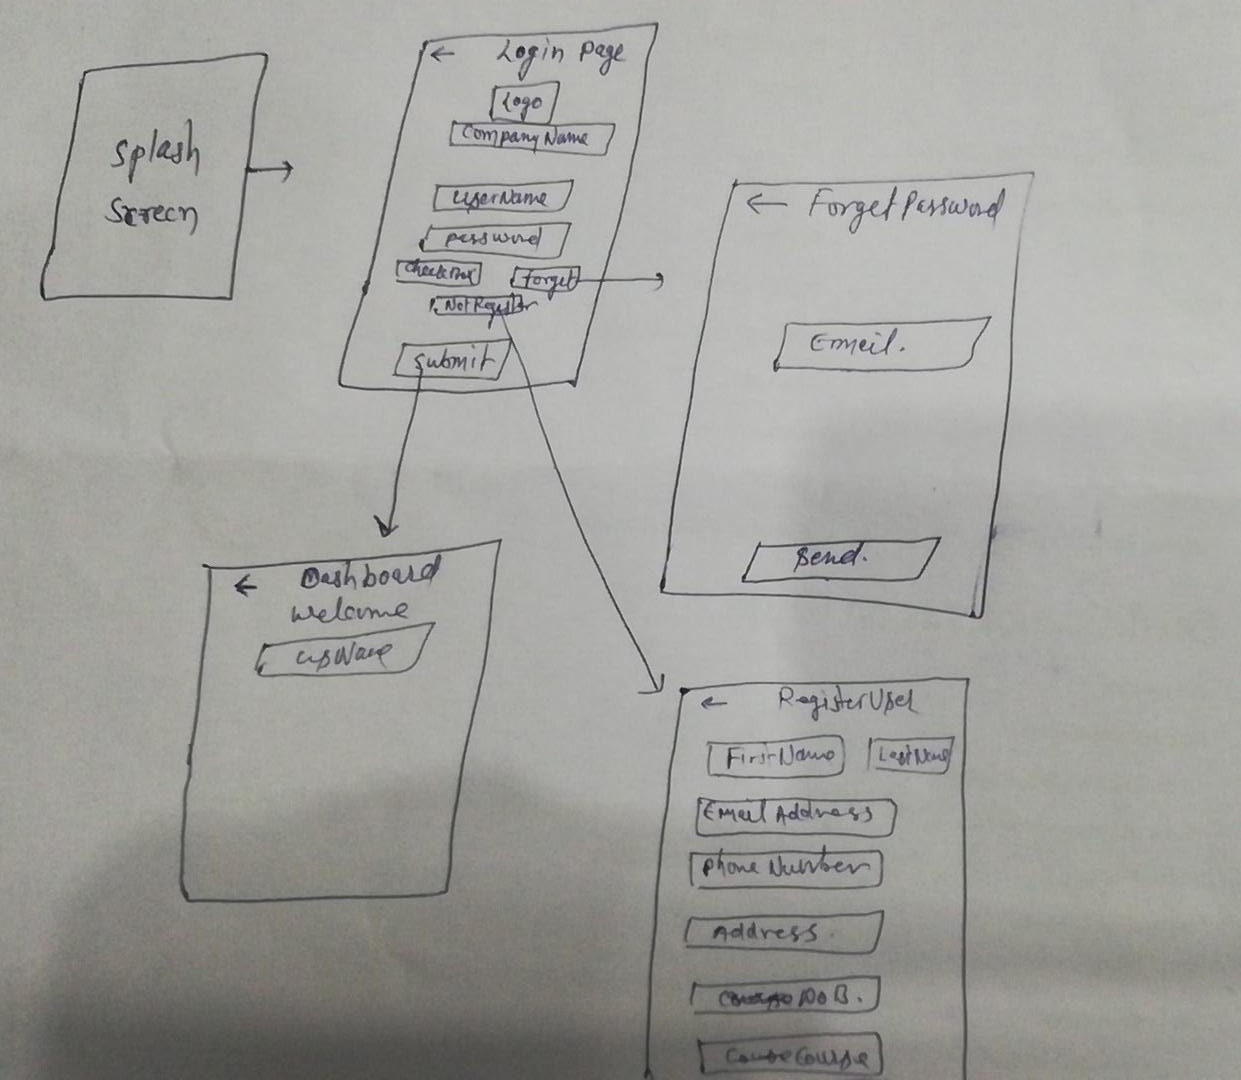 Splash
Screen
← Login Page
Logo
Company Name
UserName
password
CheckBox
Forget
Not Register
Submit
← Forget Password
Email.
Send.
← Dashboard
Welcome
← RegisterUser
FirstName
LastName
Email Address
Phone Number
Address.
DoB.
Course